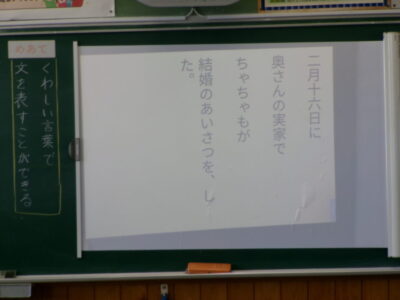 二月十六日に
奥さんの実家で
ちゃちゃもが
結婚のあいさつを、し
た。
めあて
くわしい言葉で
文を表すことができる